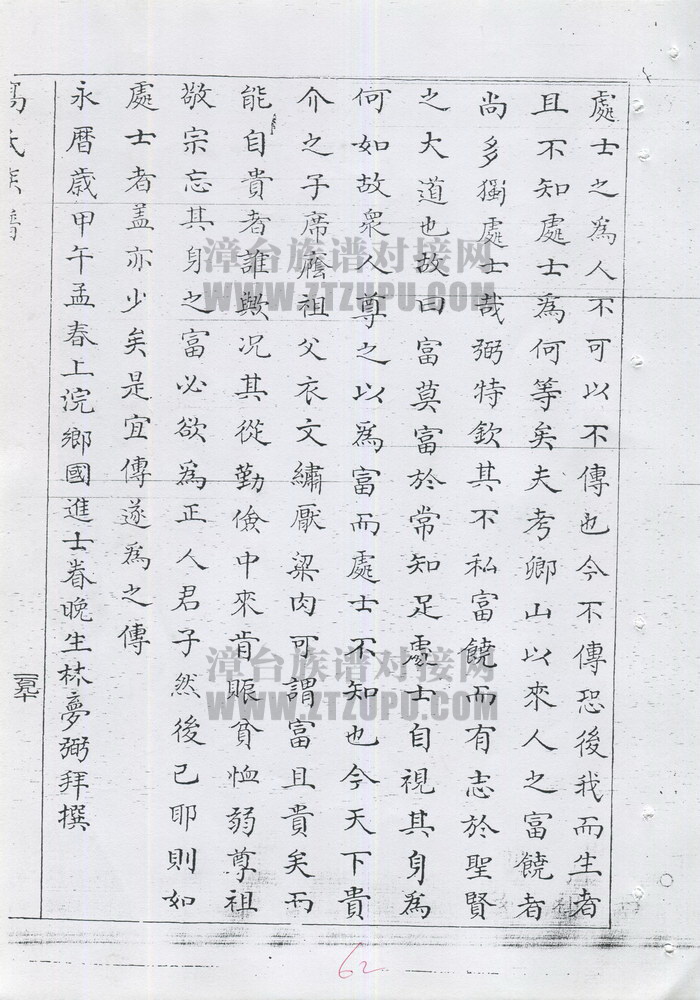 處士之為人不可以不傳也今不傳恐後我而生者
且不知處士為何等矣夫考鄉山以來人之富饒者
尚多獨處士哉弼特欽其不私富饒而有志於聖賢
之大道也故曰富莫富於常知足處士自視其身為
何如故衆人尊之以為富而處士不知也今天下貴
介之子席廕祖父衣文繡厭粱肉可謂富且貴矣而
能自貴者誰歟况其從勤儉中來肯賑貧恤弱尊祖
敬宗忘其身之富必欲為正人君子然後已耶則如
處士者盖亦少矣是宜傳遂為之傳
永曆歲甲午孟春上浣鄉國進士眷晚生林夢弼拜撰
氏族譜
漳台族谱对接网
WWW.ZTZUPU.COM
漳台族谱对接网
WWW.ZTZUPU.COM
62